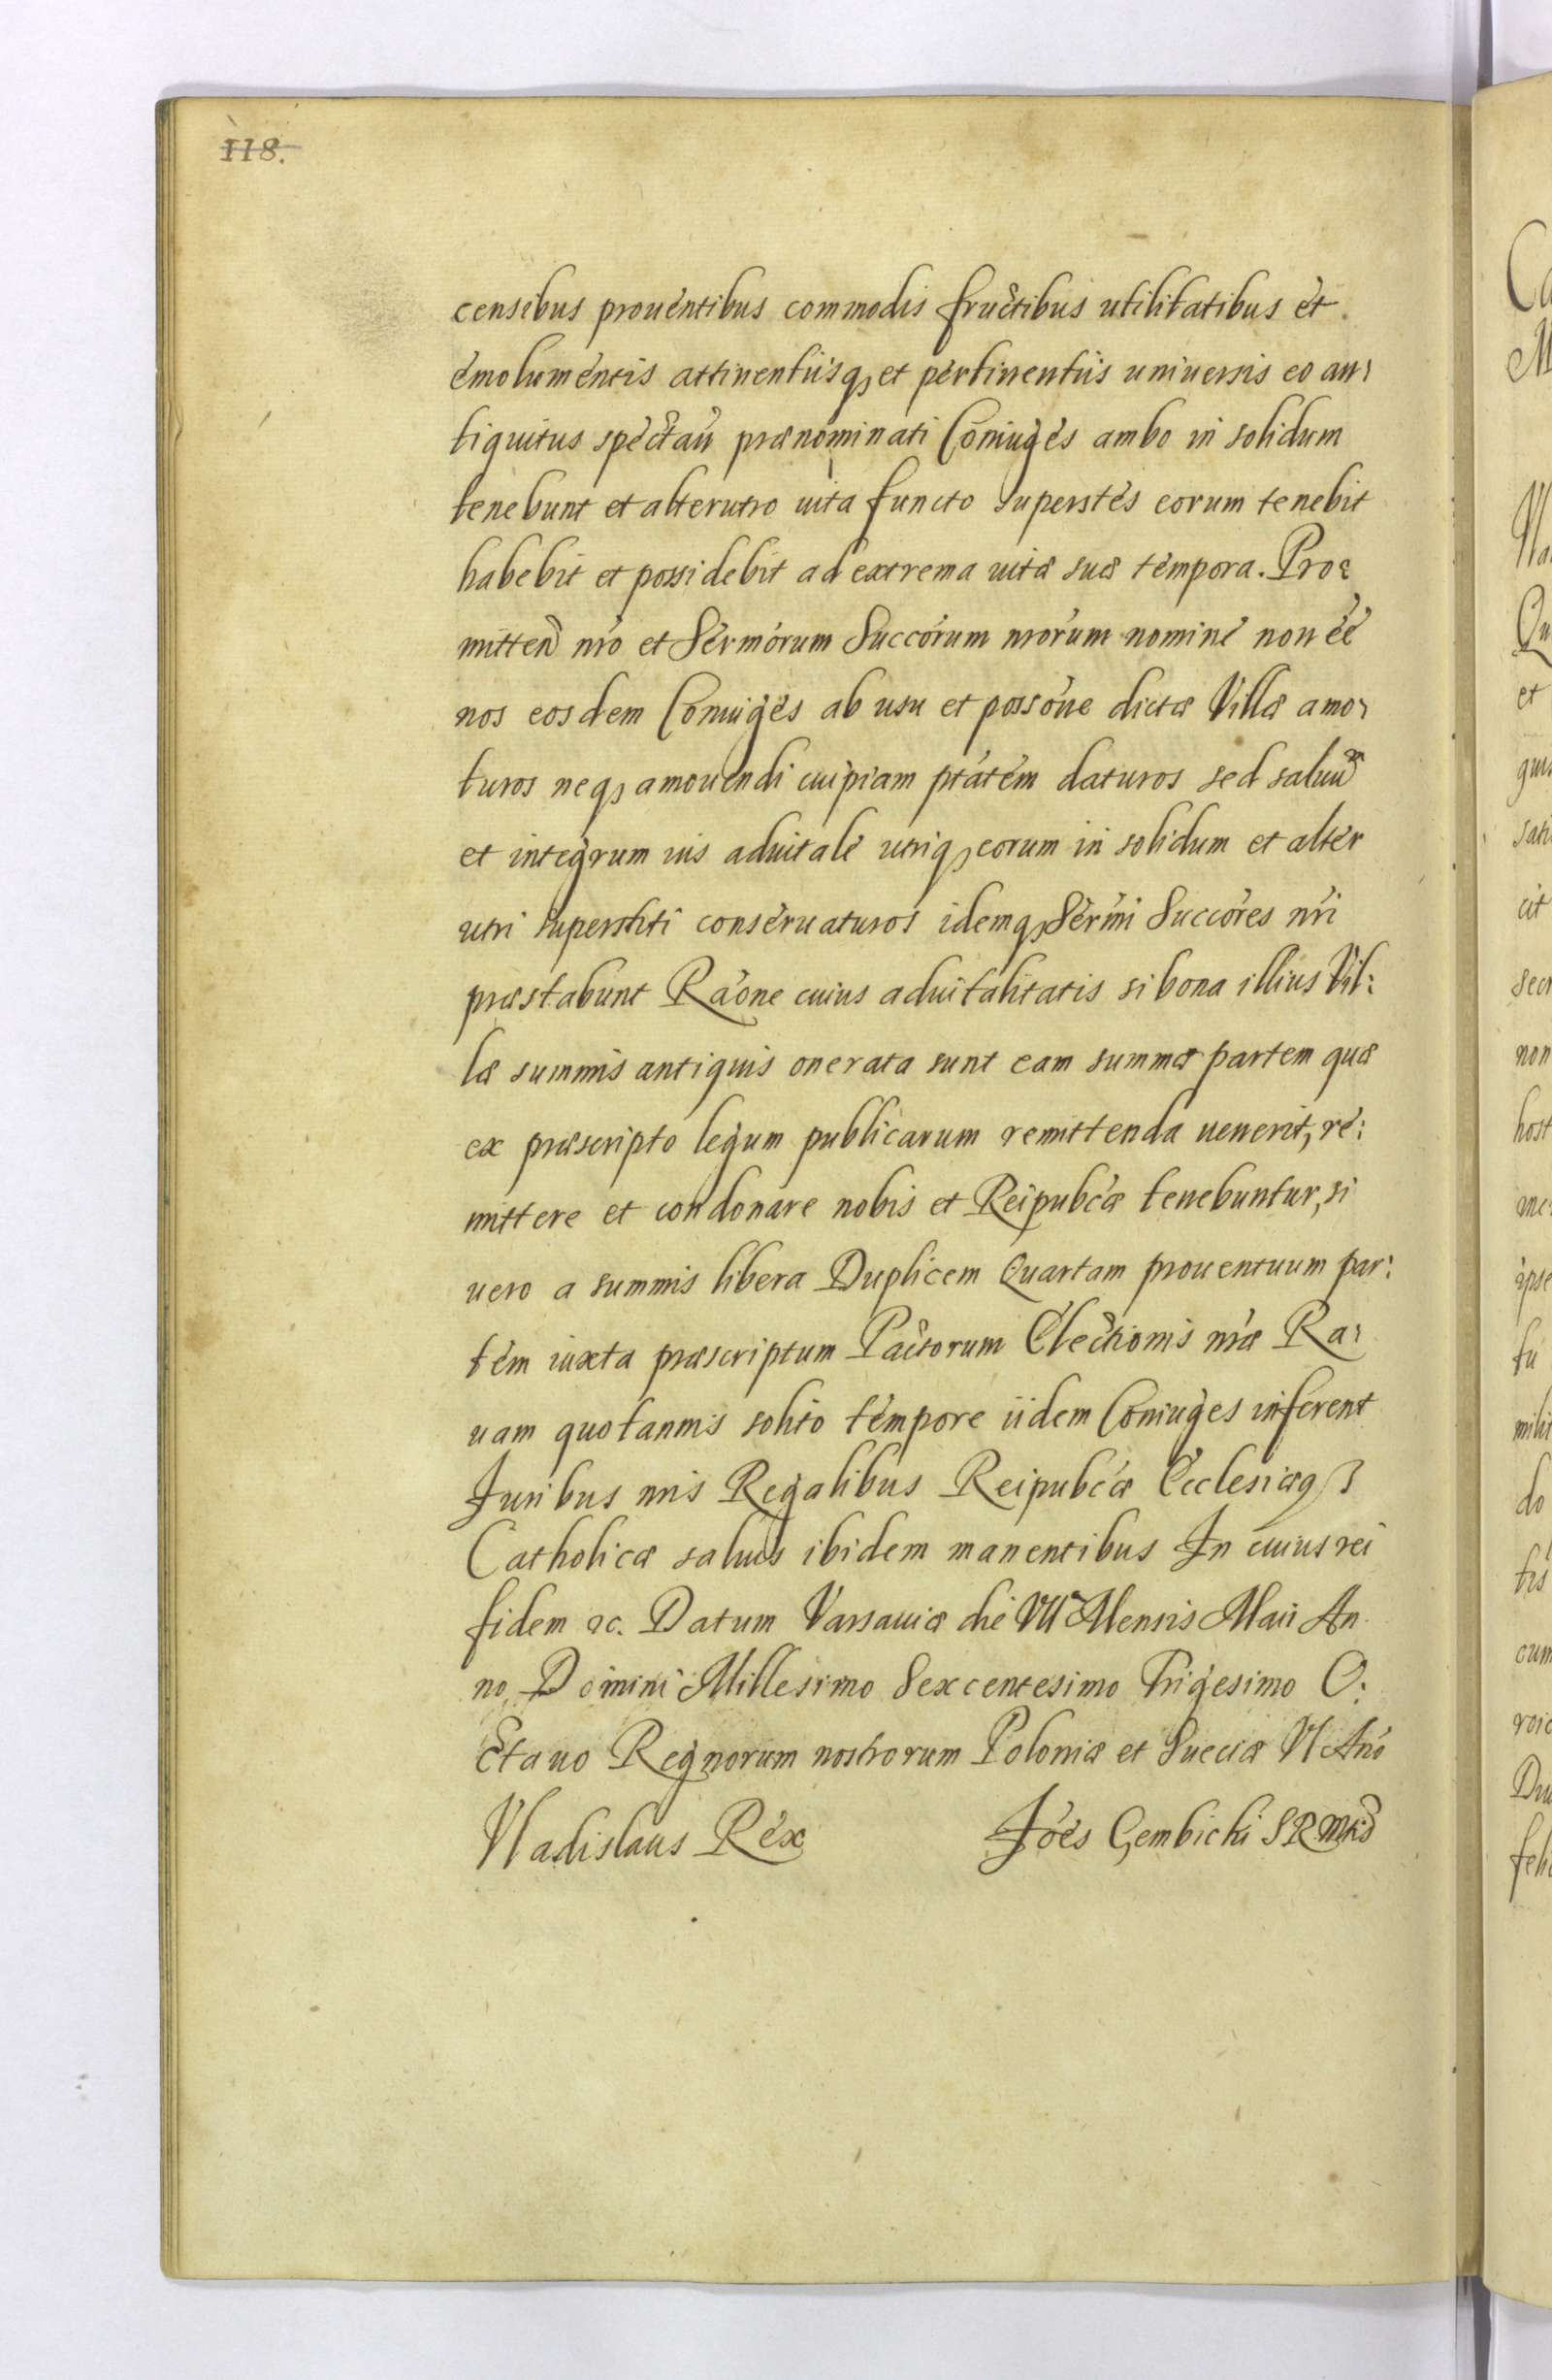 118.
censibus prouentibus commodis fructibus utilitatibus et
emolumentis attinentiisq, et pertinentiis uniuersis eo an:
tiquitus spectan̄ prænominati Coniuges ambo in solidum
tenebunt et alterutro uita functo superstes eorum tenebit
habebit et possidebit ad extrema uitæ suæ tempora. Pro:
mitten̄ nró et Sermórum Succórum nrórum nomine non éé
nos eosdem Coniuges ab usu et possóne dictæ Villæ amo:
turos neq, amouendi cuipiam ptátem daturos sed saluū
et integrum ius aduitale utriq, eorum in solidum et alter
utri superstiti conseruaturos idemq, Sermí Succóres nrí
præstabunt Raóne cuius aduitalitatis si bona illius Vil:
læ summis antiquis onerata sunt eam summæ partem quæ
ex præscripto legum publicarum remittenda uenerit, re:
mittere et condonare nobis et Reipubcæ tenebuntur, si
uero a summis libera Duplicem Quartam prouentuum par:
tem iuxta præscriptum Pactorum Electionis nræ Ra:
uam quotannis solito tempore iidem Coniuges inferent
Iuribus nris Regalibus Reipubcæ Ecclesiæq3
Catholicæ saluis ibidem manentibus In cuius rei
fidem &c. Datum Varsauiæ die VII Mensis Maii An
no Domini Millesimo Sexcentesimo Trigesimo O:
ctauo Regnorum nostrorum Poloniæ et Sueciæ VI Anó
Vladislaus Rex Ioés Gembichi SRMtis